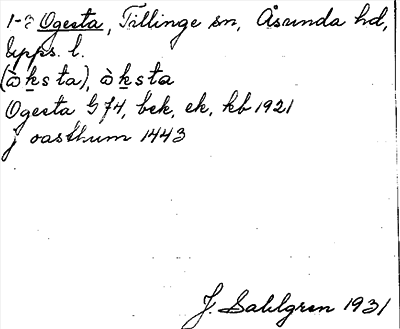 1-2 Ogesta, Tillinge sn, Åsunda hd,
Upps. l.
(òksta), òksta
Ogesta G f4, bek, ek, kb 1921
j oasthum 1443
J. Sahlgren 1931